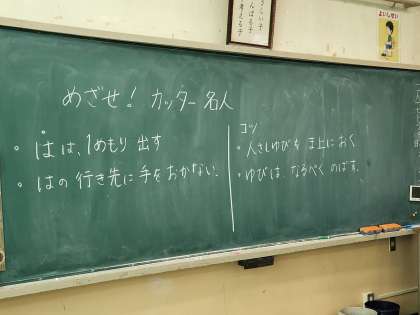 めざせ！カッター名人
・はは、1めもり出す
・はの行き先に手をおかない。
コツ
・人さしゆびを ま上に おく
・ゆびは、なるべく のばす。
よいしせい